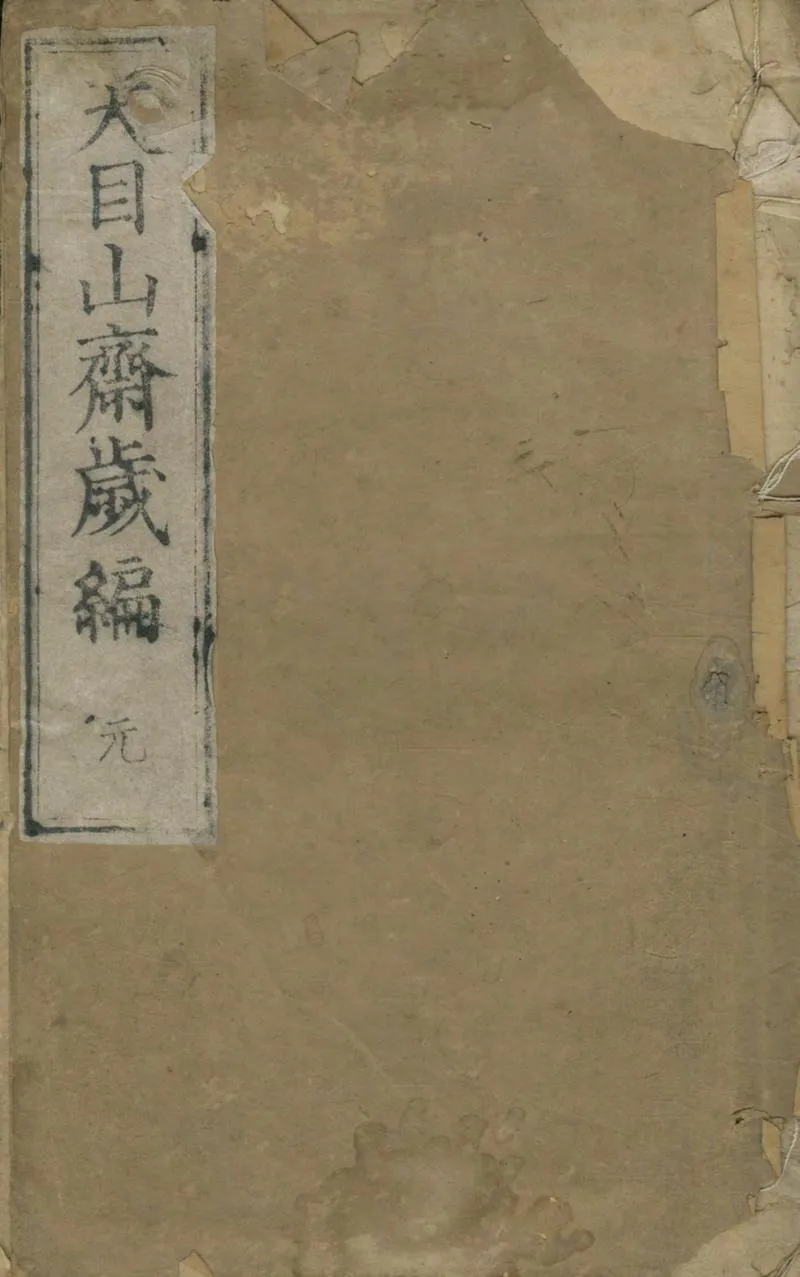 天目山齋歲編
元